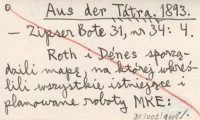 Aus der Tátra. 1893.
- Zipser Bote 31, nr 34: 4.
Roth i Dénes sporzą-
dzili mapę, na której wkreś-
lili wszystkie istniejące i
planowane roboty MKE: